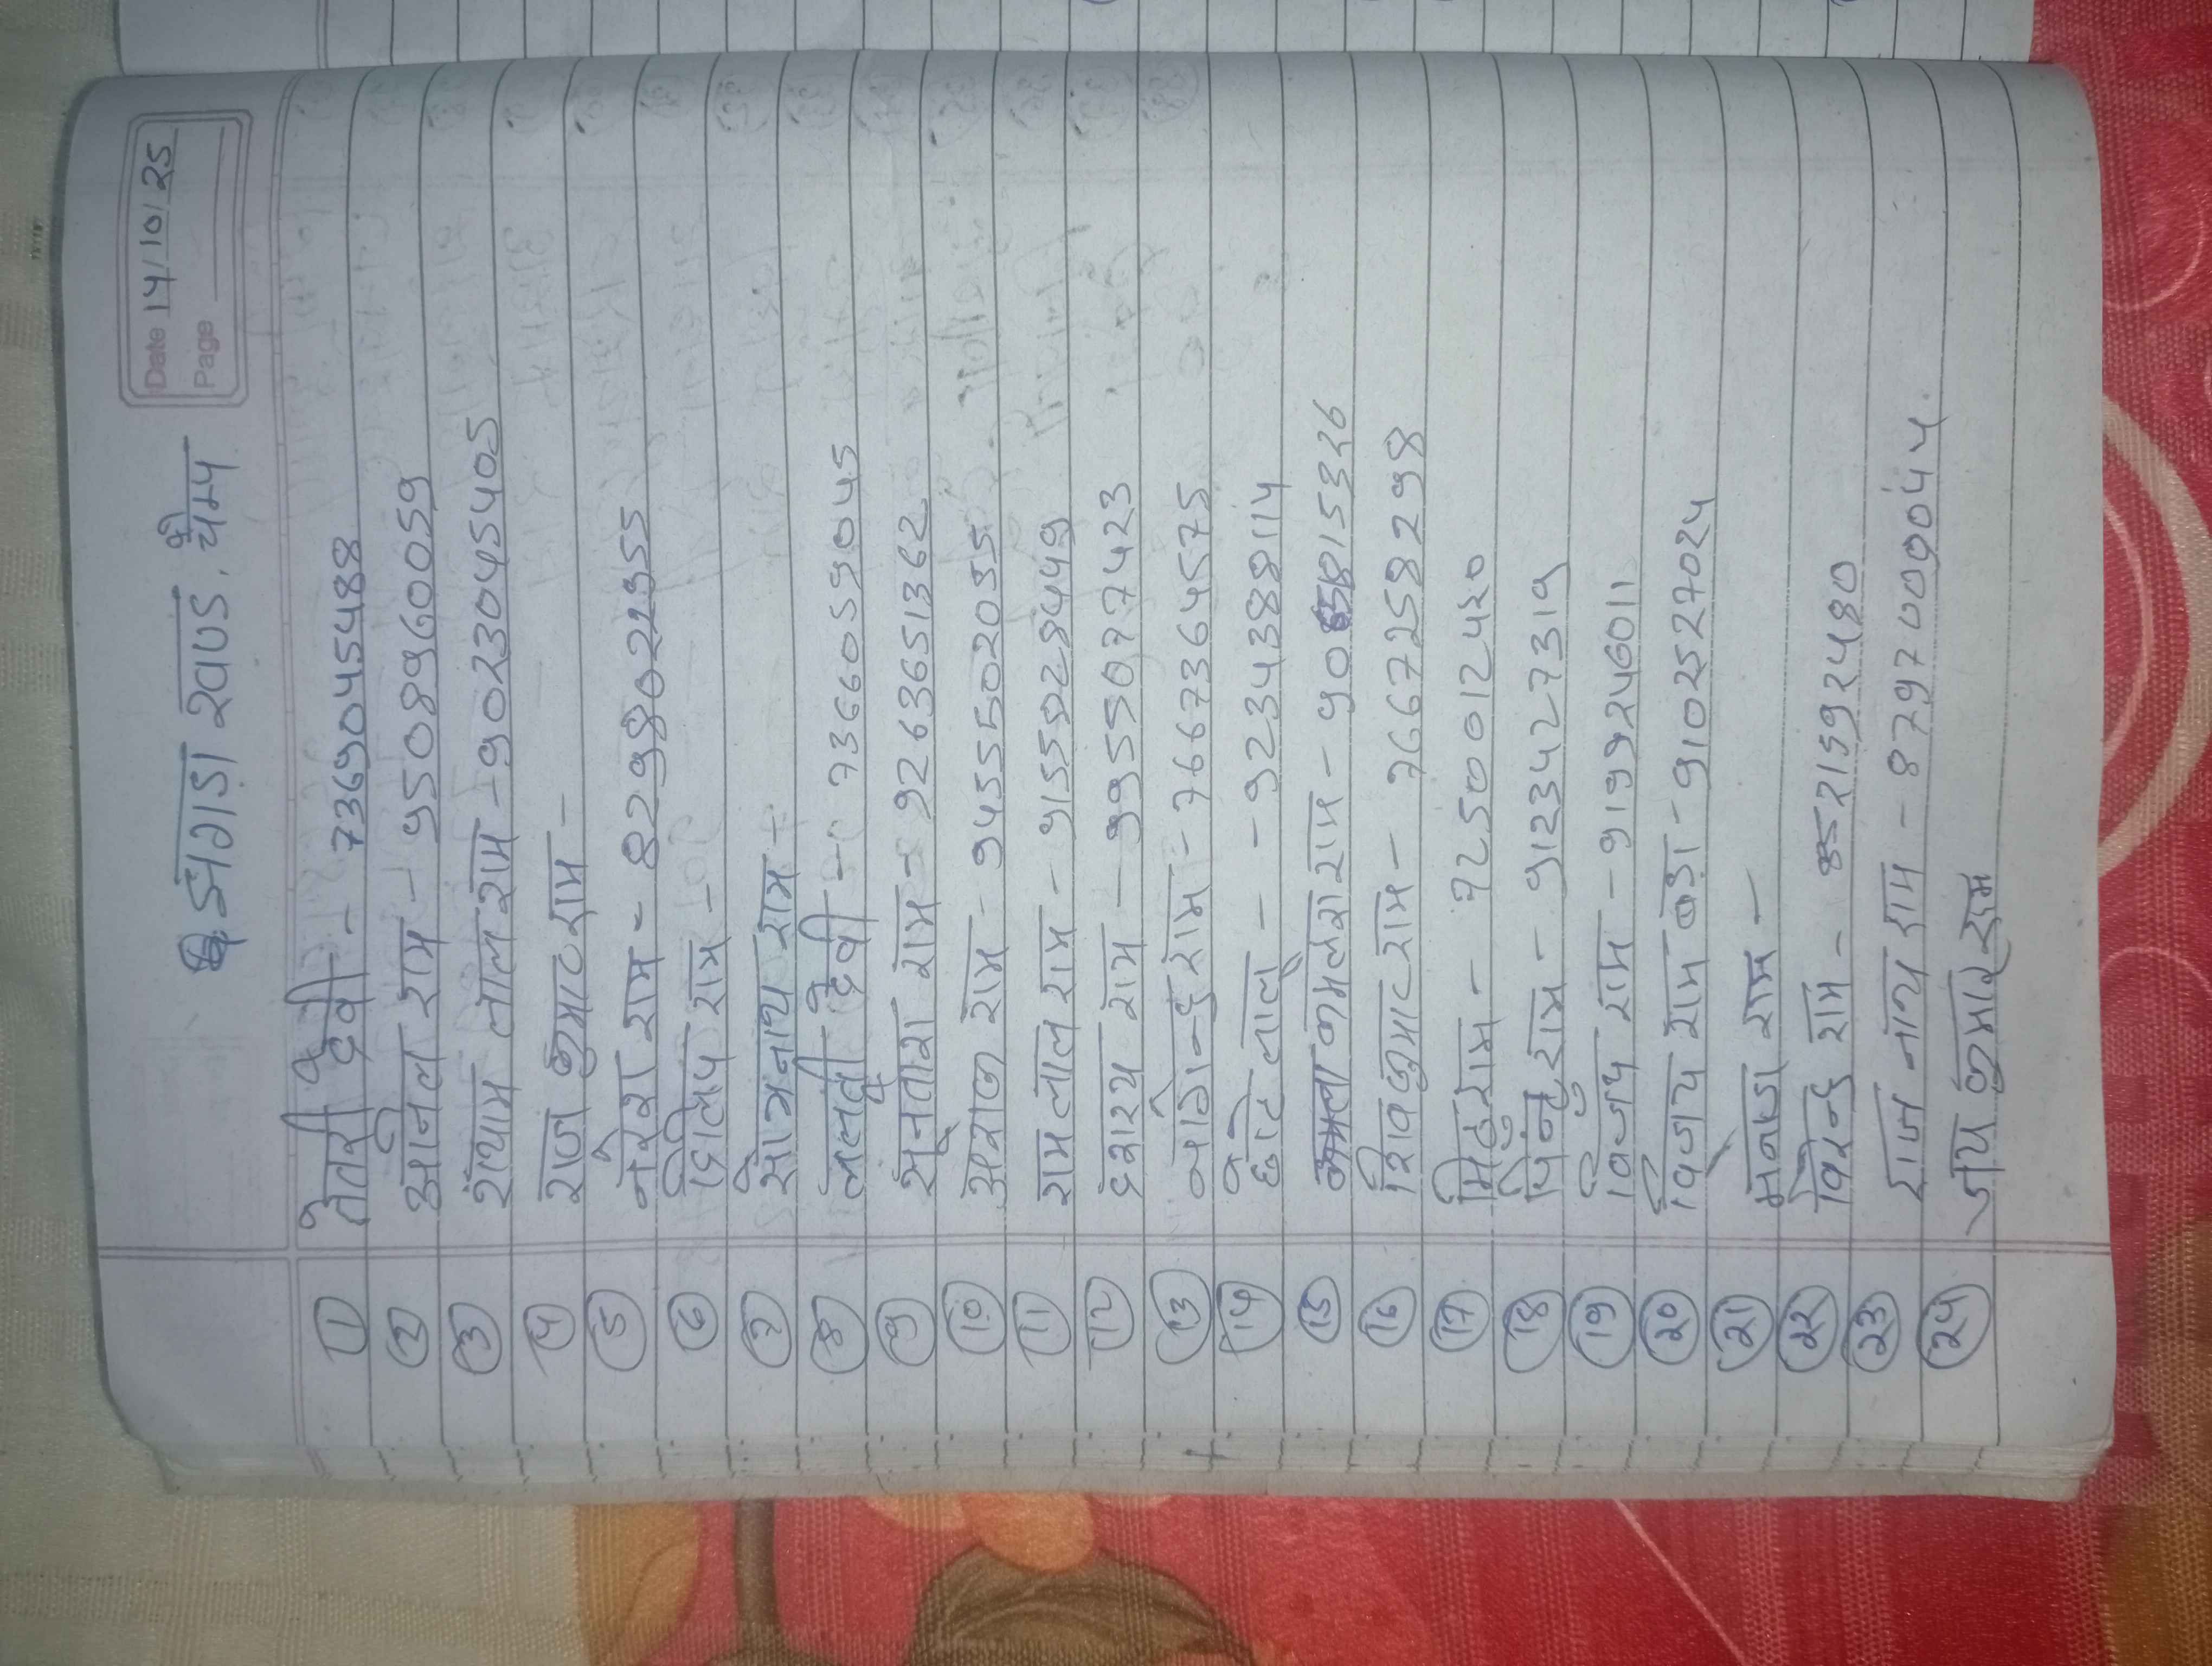 Date 14/10/25
Page
झगडा खण्ड, चैम्प
① तेतरी देवी - 7369045488
② अनिल राम - 9508960059
③ शयाम लाल राम - 9023045405
④ राज कुमार राम -
⑤ नरेश राम - 8298021355
⑥ दिलिप राम -
⑦ सोमनाथ राम -
⑧ लालती देवी - 7366059045
⑨ सुनतारा राम - 9263651362
⑩ राम - 9455502035
⑪ राम लाल राम - 9155028449
⑫ दशरथ राम - 9955077423
⑬ राम - 7667364575
⑭ छोटे लाल - 9234388114
⑮ कमलेश राम -
⑯ शिव कुमार राम - 7667258298
⑰ मिठु राम - 7250012420
⑱ पिंन्टु राम - 9123427319
⑲ विजय राम - 9199246011
⑳ विजय राम बड़ा - 9102527024
㉑ मनोज राम -
㉒ विरेन्द्र राम - 8521592480
㉓ राज नाथ राम - 8797009044.
㉔ जय कुमार राम